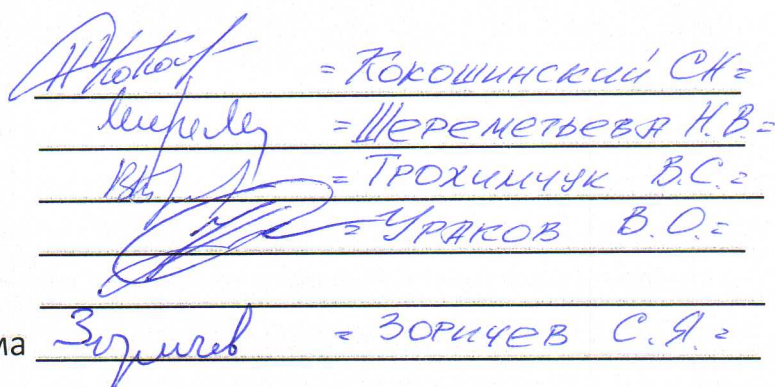 = Кокошинский С.Н. =
= Шереметьева Н.В. =
= Трохимчук В.С. =
= Ураков В.О. =
ма Зоричев = Зоричев С.Я. =